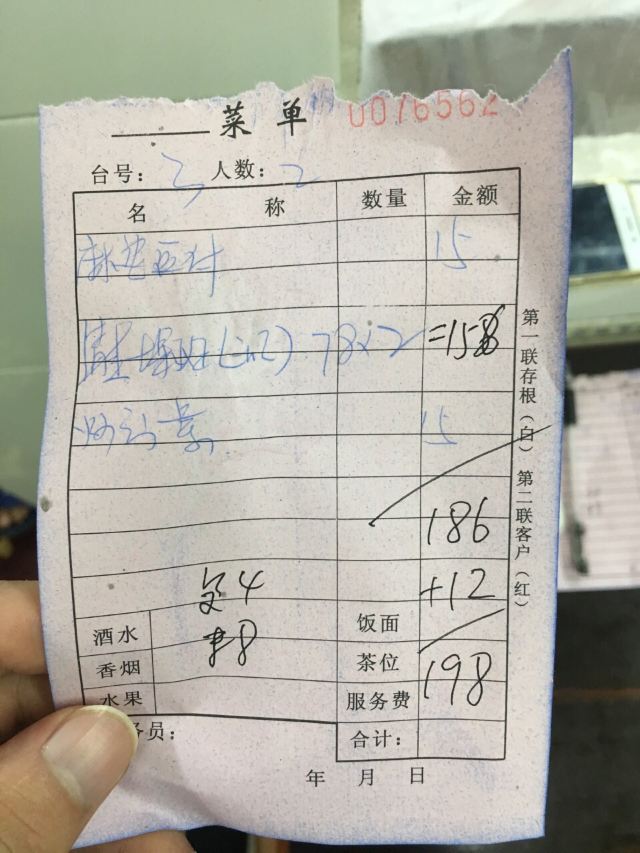 菜单 0076562
台号： 3 人数： 2
名称 数量 金额
麻婆豆付 15
(2斤) 78×2 =158
炒 15
186
4 +12
酒水 8 饭面
香烟 茶位 198
水果 服务费
员： 合计：
年 月 日
第一联存根（白） 第二联客户（红）